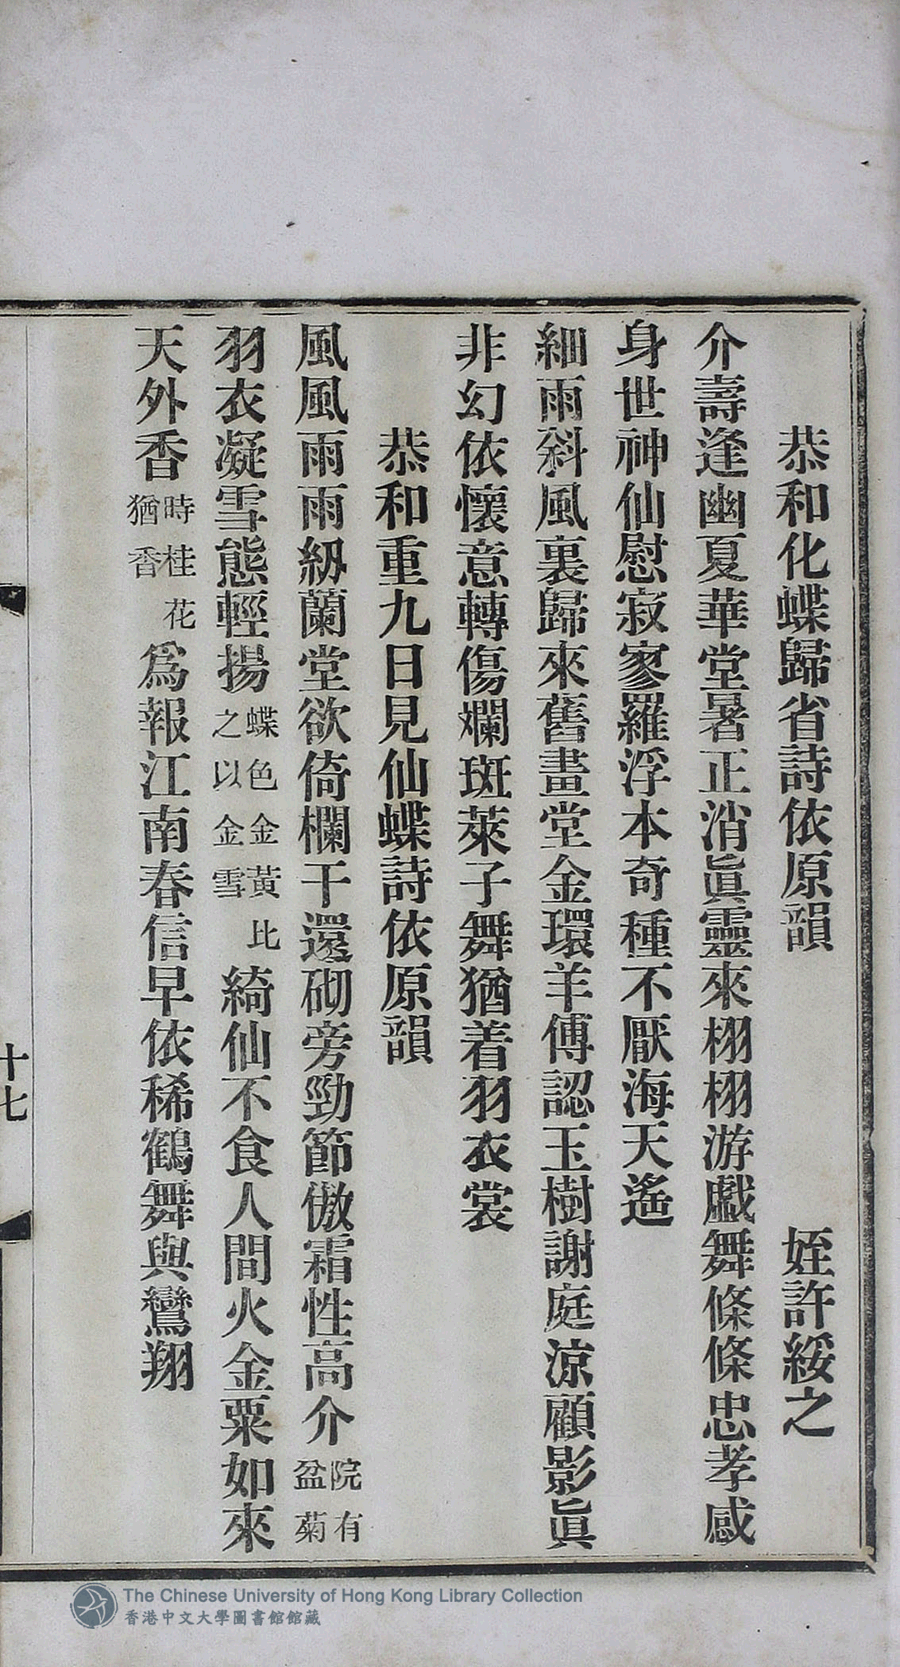 恭和化蝶歸省詩依原韻　姪許綏之
介壽逢幽夏華堂暑正消眞靈來栩栩游戲舞條條忠孝感
身世神仙慰寂寥羅浮本奇種不厭海天遙
細雨斜風裏歸來舊畫堂金環羊傅認玉樹謝庭涼顧影眞
非幻依懷意轉傷斕斑萊子舞猶着羽衣裳
恭和重九日見仙蝶詩依原韻
風風雨雨紉蘭堂欲倚欄干還砌旁勁節傲霜性高介院有盆菊
羽衣凝雪態輕揚蝶色金黃比之以金雪綺仙不食人間火金粟如來
天外香時桂花猶香爲報江南春信早依稀鶴舞與鸞翔
十七
The Chinese University of Hong Kong Library Collection
香港中文大學圖書館館藏